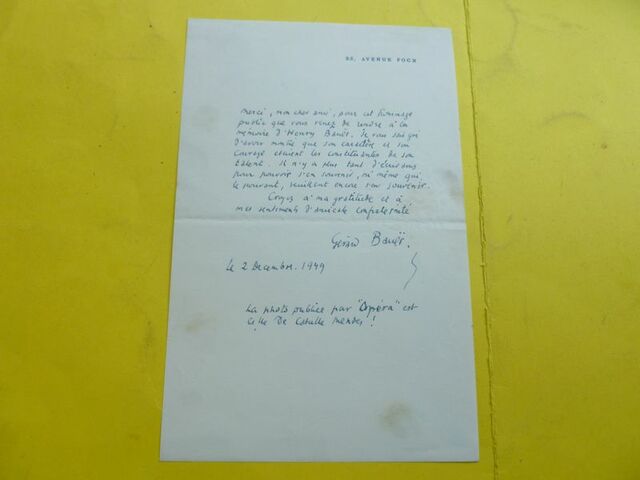 AVENUE FOCH
Merci, mon cher ami, pour cet hommage
public que vous venez de rendre à la
mémoire d'Henry Bauër. Je vous sais gré
d'avoir montré que son caractère et son
courage étaient les constituantes de son
talent. Il n'y a plus tant d'écrivains
pour pouvoir s'en souvenir, ni même qui,
le pouvant, veuillent encore s'en souvenir.
Croyez à ma gratitude et à
mes sentiments d'amicale confraternité
Gérard Bauër.
Le 2 Decembre. 1949
La photo publiée par "Opéra" est
celle De Catulle Mendès !